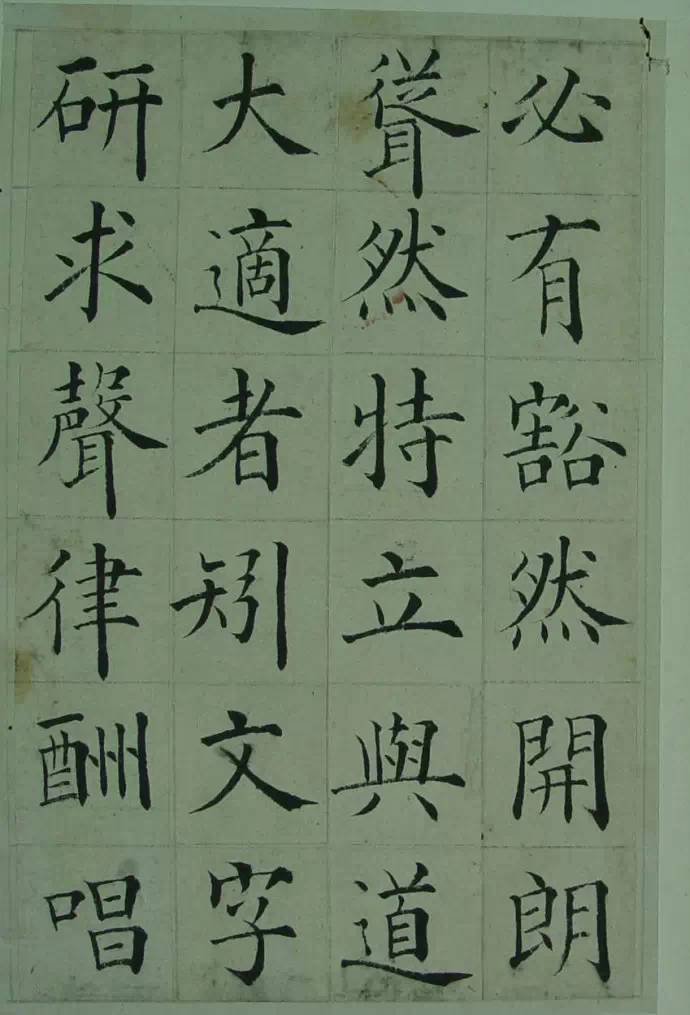 必有豁然開朗
聳然特立與道
大適者矧文字
研求聲律酬唱